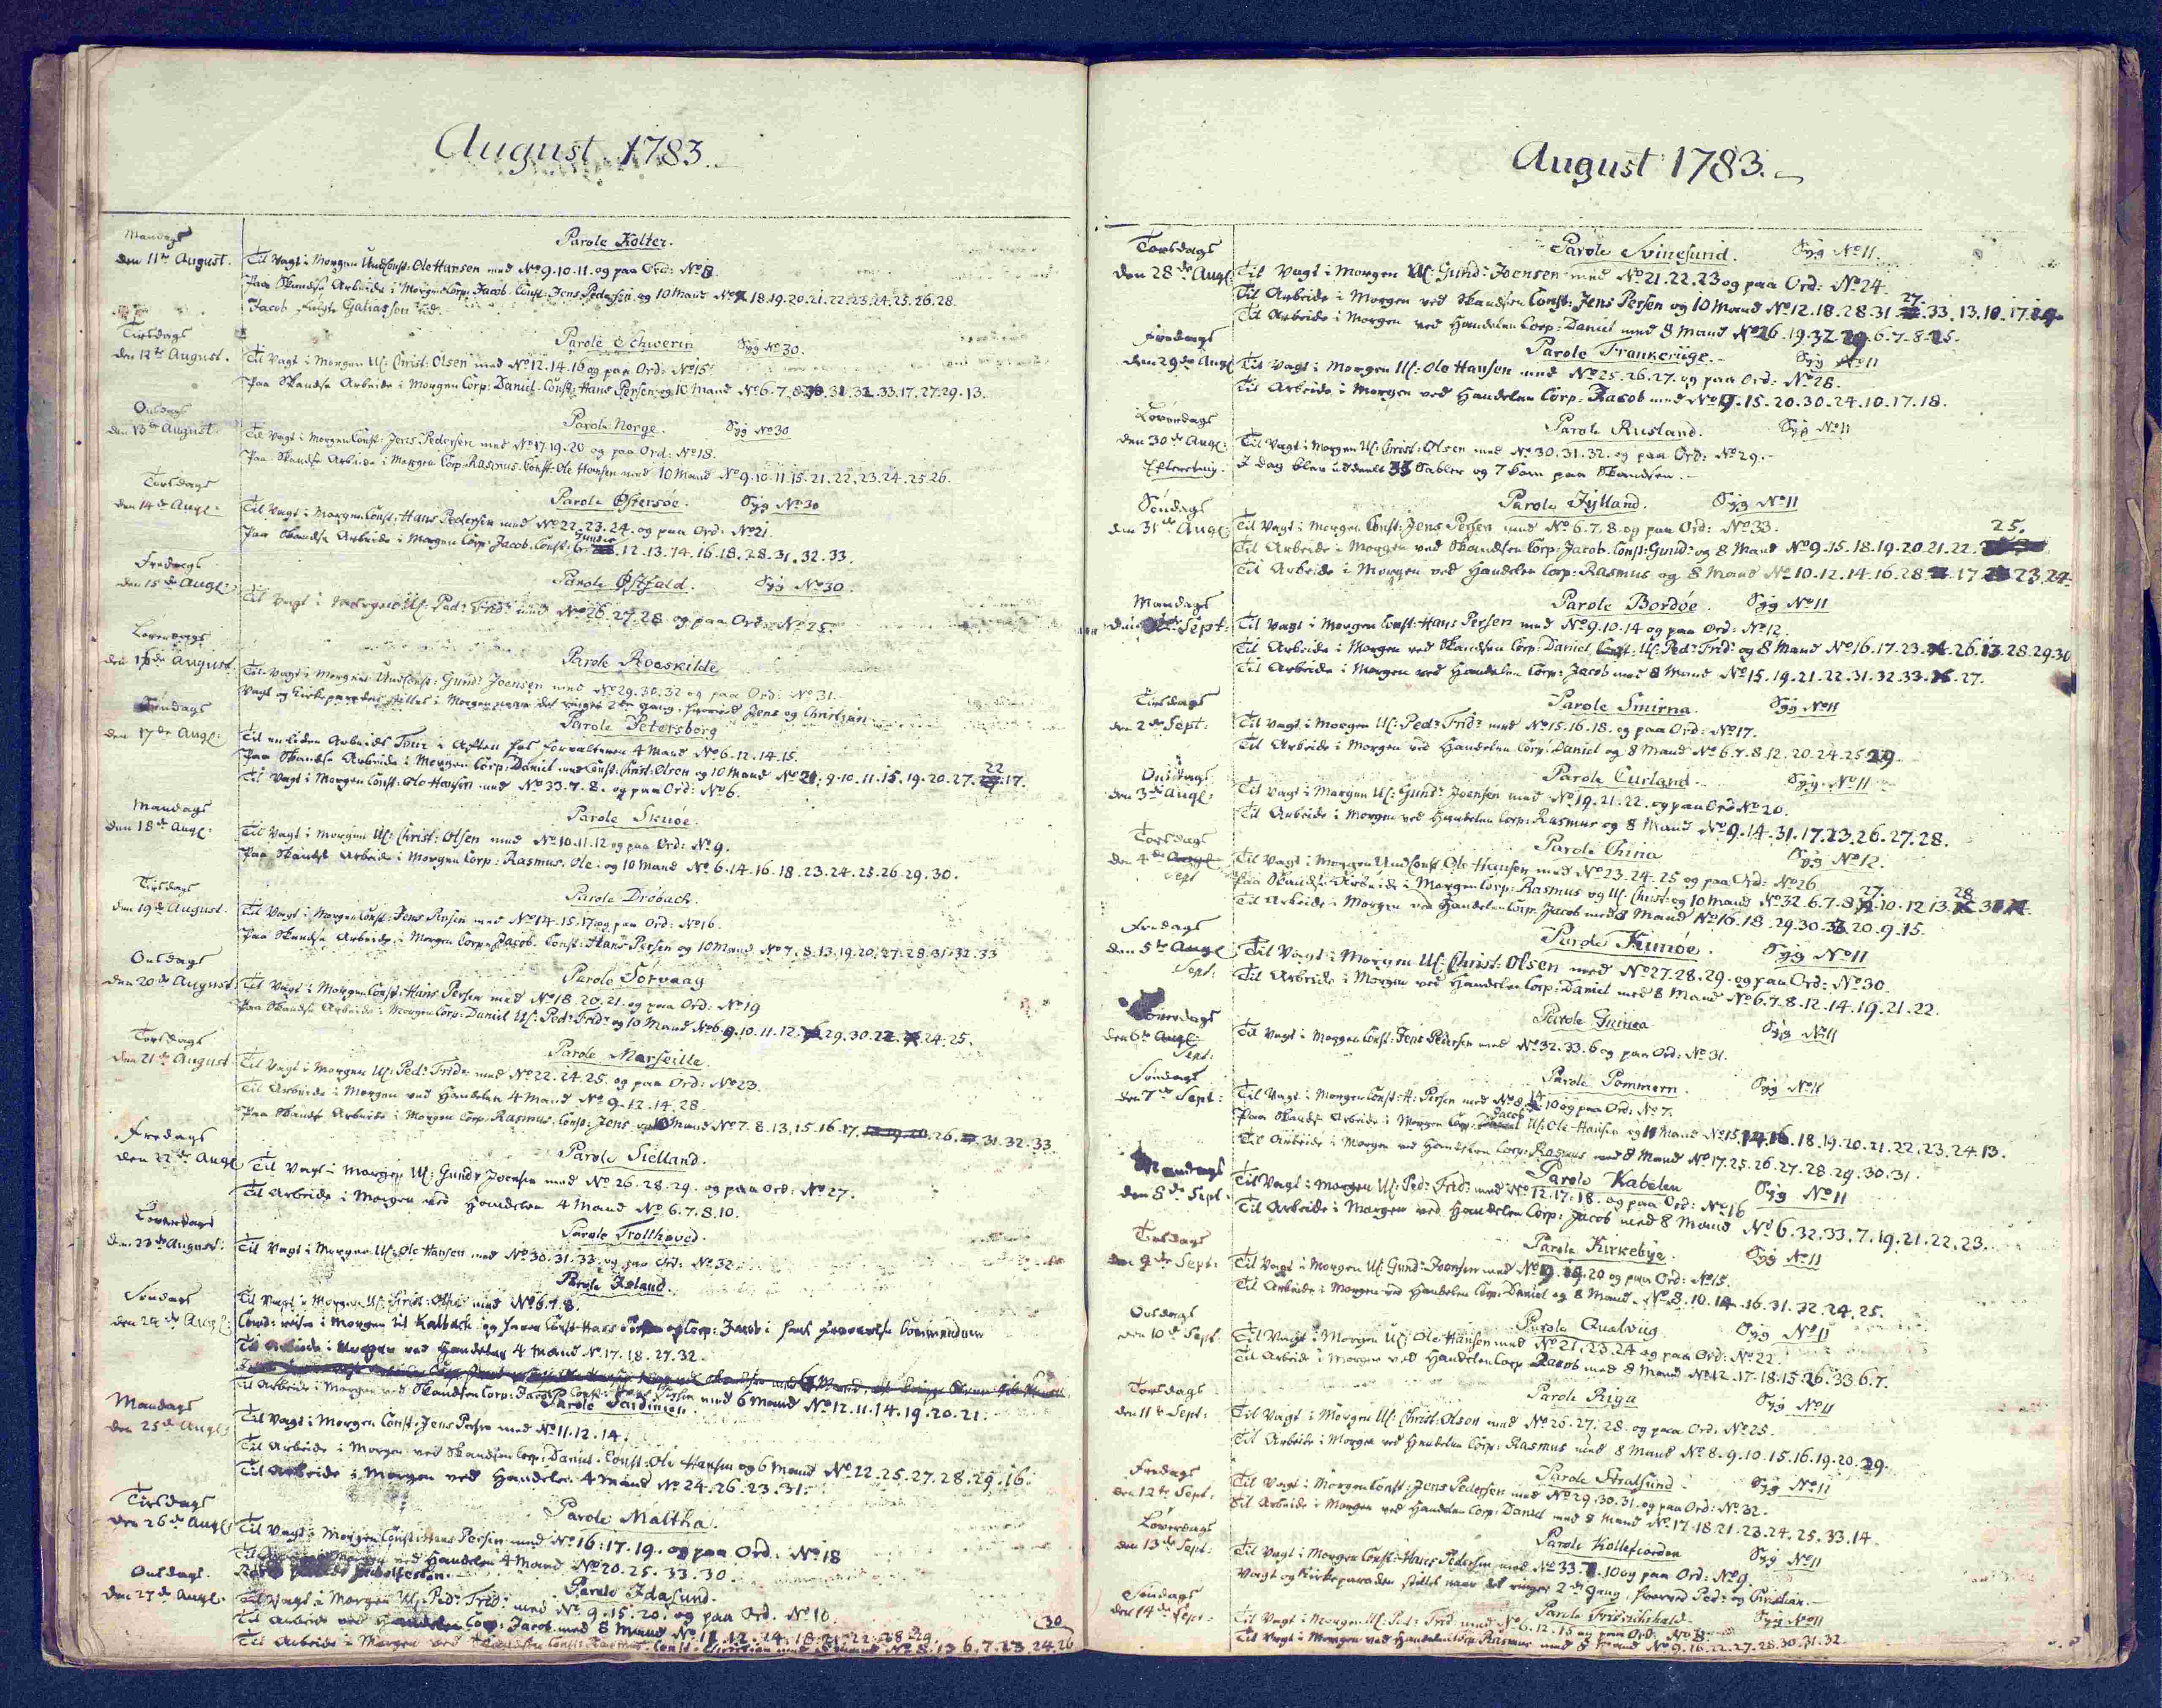 August 1783.
Mandags
den 11te August.
Parole Kolter.
Til Vagt i Morgen UndConst: Ole Hansen med No 9.10.11. og paa Ord: No 8.
Paa Skandse Arbeide i Morgen Corp: Jacob. Const: Jens Pedersen og 10 Mand No 18.19.20.21.22.23.24.25.26.28.
Jacob
Tirsdags
den 12te August.
Parole Schwerin Syg No 30.
Til Vagt i Morgen UC: Christ: Olsen med No 12.14.16 og paa Ord: No 15
Paa Skandse Arbeide i Morgen Corp: Daniel. Const: Hans Persen og 10 Mand No 6.7.8. 31.32.33.17.27.29.13.
Onsdags
den 13de August.
Parole Norge. Syg No 30
Til Vagt i Morgen Const: Jens Pedersen med No 17.19.20 og paa Ord: No 18.
Paa Skandse Arbeide i Morgen Corp: Rasmus. Const: Ole Hansen med 10 Mand No 9.10.11.15.21.22.23.24.25.26.
Torsdags
den 14de Augt:
Parole Østersøe. Syg No 30
Til Vagt i Morgen Const: Hans Pedersen med No 22.23.24. og paa Ord: No 21.
Paa Skandse Arbeide i Morgen Corp: Jacob. Const: 12.13.14.16.18.28.31.32.33.
Fredags
den 15de Augt:
Parole Østfald. Syg No 30.
Til Vagt i Morgen UC: Pedr Fridr med No 26.27.28 og paa Ord: No 25.
Løverdags
den 16de August.
Parole Roeskilde
Til Vagt i Morgen UndConst: Gundr Joensen med No 29.30.32 og paa Ord: No 31.
Vagt og Kirkeparaden stilles i Morgen naar det ringer 2den gang, hvorved Jens og Christian
Søndags
den 17de Augt:
Parole Petersborg
Til en liden Arbeids Tour i Aften hos Forvalteren 4 Mand No 6.12.14.15.
Paa Skandse Arbeide i Morgen Corp: Daniel med Const: Christ: Olsen og 10 Mand No 21.9.10.11.15.19.20.27. 22 17.
Til Vagt i Morgen Const: Ole Hansen med No 33.7.8. og paa Ord: No 6.
Mandags
den 18de Augt:
Parole Skuøe.
Til Vagt i Morgen UC: Christ: Olsen med No 10.11.12 og paa Ord: No 9.
Paa Skandse Arbeide i Morgen Corp: Rasmus. Ole. og 10 Mand No 6.14.16.18.23.24.25.26.29.30.
Tirsdags
den 19de August.
Parole Drøbach.
Til Vagt i Morgen Const: Jens Persen med No 14.15.17 og paa Ord: No 16.
Paa Skandse Arbeide i Morgen Corp: Jacob. Const: Hans Persen og 10 Mand No 7.8.13.19.20.27.28.31.32.33
Onsdags
den 20de August
Parole Sørvaag
Til Vagt i Morgen Const: Hans Persen med No 18.20.21. og paa Ord: No 19
Paa Skandse Arbeide i Morgen Corp: Daniel UC: Pedr Fridr og 10 Mand No 6.9.10.11.12. 29.30.22. 24.25.
Torsdags
den 21de August
Parole Marseille.
Til Vagt i Morgen UC: Pedr Fridr med No 22.24.25. og paa Ord: No 23.
Til Arbeide i Morgen ved Handelen 4 Mand No 9.12.14.28
Paa Skandse Arbeide i Morgen Corp: Rasmus. Const: Jens og 10 Mand No 7.8.13.15.16.17. 26. 31.32.33.
Fredags
den 22de Augt
Parole Sielland.
Til Vagt i Morgen UC: Gundr Joensen med No 26.28.29. og paa Ord: No 27.
Til Arbeide i Morgen ved Handelen 4 Mand No 6.7.8.10.
Løverdags
den 23de August:
Parole Trollhoved.
Til Vagt i Morgen UC: Ole Hansen med No 30.31.33. og paa Ord: No 32.
Søndags
den 24de Augt:
Parole Island.
Til Vagt i Morgen UC: Christ: Olsen med No 6.7.8.
Comd: reiser i Morgen til Kalback og haver Const: Hans Persen og Corp: Jacob i hans fraværelse Commandoen
Til Arbeide i Morgen ved Handelen 4 Mand No 17.18.27.32.
Til Arbeide i Morgen ved Skandsen Corp: Jacob Const: Hans Persen med 6 Mand No 12.11.14.19.20.21.
Mandags
den 25de Augt:
Parole Sardinien.
Til Vagt i Morgen Const: Jens Persen med No 11.12.14.
Til Arbeide i Morgen ved Skandsen Corp: Daniel. Const: Ole Hansen og 6 Mand No 22.25.27.28.29.16.
Til Arbeide i Morgen ved Handelen 4 Mand No 24.26.23.31.
Tirsdags
den 26de Augt:
Parole Maltha.
Til Vagt i Morgen Const: Hans Persen med No 16.17.19. og paa Ord: No 18
Til Arbeide i Morgen ved Handelen 4 Mand No 20.25.33.30.
Onsdags
den 27de Augt:
Parole Idasund.
Til Vagt i Morgen UC: Pedr Fridr med No 9.15.20. og paa Ord. No 10
Til Arbeide ved Handelen Corp: Jacob med 8 Mand No 11.12.14.18.21.22.28.29
Til Arbeide i Morgen ved Skandsen No 8.13.6.7.23.24.26 30
August 1783.
Torsdags
den 28de Augt:
Parole Svinesund. Syg No 11.
Til Vagt i Morgen UC: Gundr Joensen med No 21.22.23 og paa Ord: No 24.
Til Arbeide i Morgen ved Skandsen Const: Jens Persen og 10 Mand No 12.18.28.31. 27. 33.13.10.17.29
Til Arbeide i Morgen ved Handelen Corp: Daniel med 8 Mand No 26.19.32.29.6.7.8.25.
Fredags
den 29de Augt
Parole Frankeriige. Syg No 11
Til Vagt i Morgen UC: Ole Hansen med No 25.26.27. og paa Ord: No 28.
Til Arbeide i Morgen ved Handelen Corp: Jacob med No 9.15.20.30.24.10.17.18.
Løverdags
den 30de Augt:
Parole Rusland. Syg No 11
Til Vagt i Morgen UC: Christ: Olsen med No 30.31.32. og paa Ord: No 29.
Efterretning. I dag blev uddeelt 33 Sabler og 7 kom paa Skandsen.
Søndags
den 31de Augt:
Parole Jylland. Syg No 11
Til Vagt i Morgen Const: Jens Persen med No 6.7.8. og paa Ord: No 33.
Til Arbeide i Morgen ved Skandsen Corp: Jacob. Const: Gundr og 8 Mand No 9.15.18.19.20.21.22. 25.
Til Arbeide i Morgen ved Handelen Corp: Rasmus og 8 Mand No 10.12.14.16.28. 17. 23.24.
Mandags
den Sept:
Parole Bordøe. Syg No 11
Til Vagt i Morgen Const: Hans Persen med No 9.10.14 og paa Ord: No 12
Til Arbeide i Morgen ved Skandsen Corp: Daniel UC: Pedr Fridr og 8 Mand No 16.17.23. 26.13.28.29.30
Til Arbeide i Morgen ved Handelen Corp: Jacob med 8 Mand No 15.19.21.22.31.32.33. 27.
Tirsdags
den 2de Sept:
Parole Smirna. Syg No 11
Til Vagt i Morgen UC: Pedr Fridr med No 15.16.18. og paa Ord: No 17.
Til Arbeide i Morgen ved Handelen Corp: Daniel og 8 Mand No 6.7.8.12.20.24.25.29.
Onsdags
den 3de Augt:
Parole Curland. Syg No 11
Til Vagt i Morgen UC: Gundr Joensen med No 19.21.22. og paa Ord No 20.
Til Arbeide i Morgen ved Handelen Corp: Rasmus og 8 Mand No 9.14.31.17.23.26.27.28.
Torsdags
den 4de Augt
Sept
Parole China Syg No 12.
Til Vagt i Morgen UndConst: Ole Hansen med No 23.24.25 og paa Ord: No 26
Paa Skandse Arbeide i Morgen Corp: Rasmus og UC: Christ: og 10 Mand No 32.6.7.8. 27. 10.12.13. 28 31.
Til Arbeide i Morgen ved Handelen Corp: Jacob med 8 Mand No 16.18.29.30.33.20.9.15.
Fredags
den 5te Augt
Sept:
Parole Kunøe. Syg No 11
Til Vagt i Morgen UC: Christ: Olsen med No 27.28.29. og paa Ord: No 30.
Til Arbeide i Morgen ved Handelen Corp: Daniel med 8 Mand No 6.7.8.12.14.19.21.22.
Løverdags
den 6te Augt:
Sept:
Parole Guinea Syg No 11
Til Vagt i Morgen Const: Jens Pedersen med No 32.33.6 og paa Ord: No 31.
Søndags
den 7de Sept:
Parole Pommern. Syg No 11
Til Vagt i Morgen Const: H. Persen med No 8. 10 og paa Ord: No 7.
Paa Skandse Arbeide i Morgen Corp: Jacob UC: Ole Hansen og 11 Mand No 15.14.16.18.19.20.21.22.23.24.13.
Til Arbeide i Morgen ved Handelen Corp: Rasmus med 8 Mand No 17.25.26.27.28.29.30.31.
Mandags
den 8de Sept.
Parole Kabelen Syg No 11
Til Vagt i Morgen UC: Pedr Fridr med No 12.17.18. og paa Ord: No 16
Til Arbeide i Morgen ved Handelen Corp: Jacob med 8 Mand No 6.32.33.7.19.21.22.23.
Tirsdags
den 9de Sept:
Parole Kirkebye. Syg No 11
Til Vagt i Morgen UC: Gundr Joensen med No 9.19.20 og paa Ord: No 15.
Til Arbeide i Morgen ved Handelen Corp: Daniel og 8 Mand No 8.10.14.16.31.32.24.25.
Onsdags
den 10de Sept.
Parole Qualviig Syg No 11
Til Vagt i Morgen UC: Ole Hansen med No 21.23.24 og paa Ord: No 22.
Til Arbeide i Morgen ved Handelen Corp Jacob med 8 Mand No 12.17.18.15.26.33.6.7.
Torsdags
den 11te Sept:
Parole Riga Syg No 11
Til Vagt i Morgen UC: Christ: Olsen med No 26.27.28. og paa Ord. No 25.
Til Arbeide i Morgen ved Handelen Corp: Rasmus med 8 Mand No 8.9.10.15.16.19.20.29.
Fredags
den 12te Sept.
Parole Stralsund. Syg No 11
Til Vagt i Morgen Const: Jens Pedersen med No 29.30.31. og paa Ord: No 32.
Til Arbeide i Morgen ved Handelen Corp: Daniel med 8 Mand No 17.18.21.23.24.25.33.14.
Løverdags
den 13de Sept:
Parole Kollefiorden Syg No 11
Til Vagt i Morgen Const: Hans Pedersen med No 33. 10 og paa Ord: No 9.
Vagt og Kirkeparaden stilles naar det ringer 2de Gang hvorved Pedr og Christian.
Søndags
den 14de Sept:
Parole Fridrichshald. Syg No 11
Til Vagt i Morgen UC: Pedr Fridr med No 6.12.15 og paa Ord: No 8.
Til Vagt i Morgen ved Handelen Corp: Rasmus med 8 Mand No 9.16.22.27.28.30.31.32.